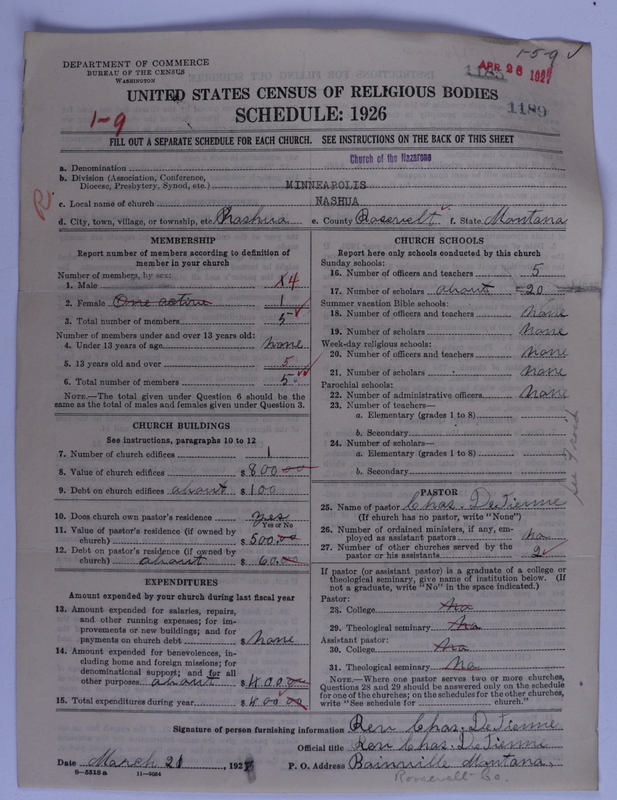 1-5-9 ✓
DEPARTMENT OF COMMERCE
BUREAU OF THE CENSUS
WASHINGTON
1185
APR 26 1927
UNITED STATES CENSUS OF RELIGIOUS BODIES
1-9
SCHEDULE: 1926
1189
FILL OUT A SEPARATE SCHEDULE FOR EACH CHURCH. SEE INSTRUCTIONS ON THE BACK OF THIS SHEET
a. Denomination Church of the Nazarene
b. Division (Association, Conference,
Diocese, Presbytery, Synod, etc.) MINNEAPOLIS
c. Local name of church NASHUA
d. City, town, village, or township, etc. Nashua e. County Rosevelt ✓ f. State Montana
MEMBERSHIP
Report number of members according to definition of
member in your church
Number of members, by sex:
1. Male 4
2. Female One active 1
3. Total number of members 5 ✓
Number of members under and over 13 years old:
4. Under 13 years of age none
5. 13 years old and over 5
6. Total number of members 5 ✓✓
NOTE.—The total given under Question 6 should be the
same as the total of males and females given under Question 3.
CHURCH BUILDINGS
See instructions, paragraphs 10 to 12
7. Number of church edifices 1
8. Value of church edifices $ 800.00
9. Debt on church edifices about $ 100
10. Does church own pastor's residence yes
Yes or No
11. Value of pastor's residence (if owned by
church) $ 500.00
12. Debt on pastor's residence (if owned by
church) about $ 60.00
EXPENDITURES
Amount expended by your church during last fiscal year
13. Amount expended for salaries, repairs,
and other running expenses; for im-
provements or new buildings; and for
payments on church debt $ none
14. Amount expended for benevolences, in-
cluding home and foreign missions; for
denominational support; and for all
other purposes about $ 400.00
15. Total expenditures during year $ 400.00
CHURCH SCHOOLS
Report here only schools conducted by this church
Sunday schools:
16. Number of officers and teachers 5
17. Number of scholars about 20
Summer vacation Bible schools:
18. Number of officers and teachers none
19. Number of scholars none
Week-day religious schools:
20. Number of officers and teachers none
21. Number of scholars none
Parochial schools:
22. Number of administrative officers none
23. Number of teachers—
a. Elementary (grades 1 to 8)
b. Secondary
24. Number of scholars—
a. Elementary (grades 1 to 8)
b. Secondary
PASTOR
25. Name of pastor Chas. DeTienne
(If church has no pastor, write "None")
26. Number of ordained ministers, if any, em-
ployed as assistant pastors no
27. Number of other churches served by the
pastor or his assistants 2 ✓
If pastor (or assistant pastor) is a graduate of a college or
theological seminary, give name of institution below. (If
not a graduate, write "No" in the space indicated.)
Pastor:
28. College no
29. Theological seminary no
Assistant pastor:
30. College no
31. Theological seminary No
NOTE.—Where one pastor serves two or more churches,
Questions 28 and 29 should be answered only on the schedule
for one of the churches; on the schedules for the other churches,
write "See schedule for church."
Signature of person furnishing information Rev Chas. DeTienne
Official title Rev Chas. DeTienne
Date March 21, 1927 P. O. Address Bainville Montana,
8-5518 a 11-9064
Roosevelt Co.